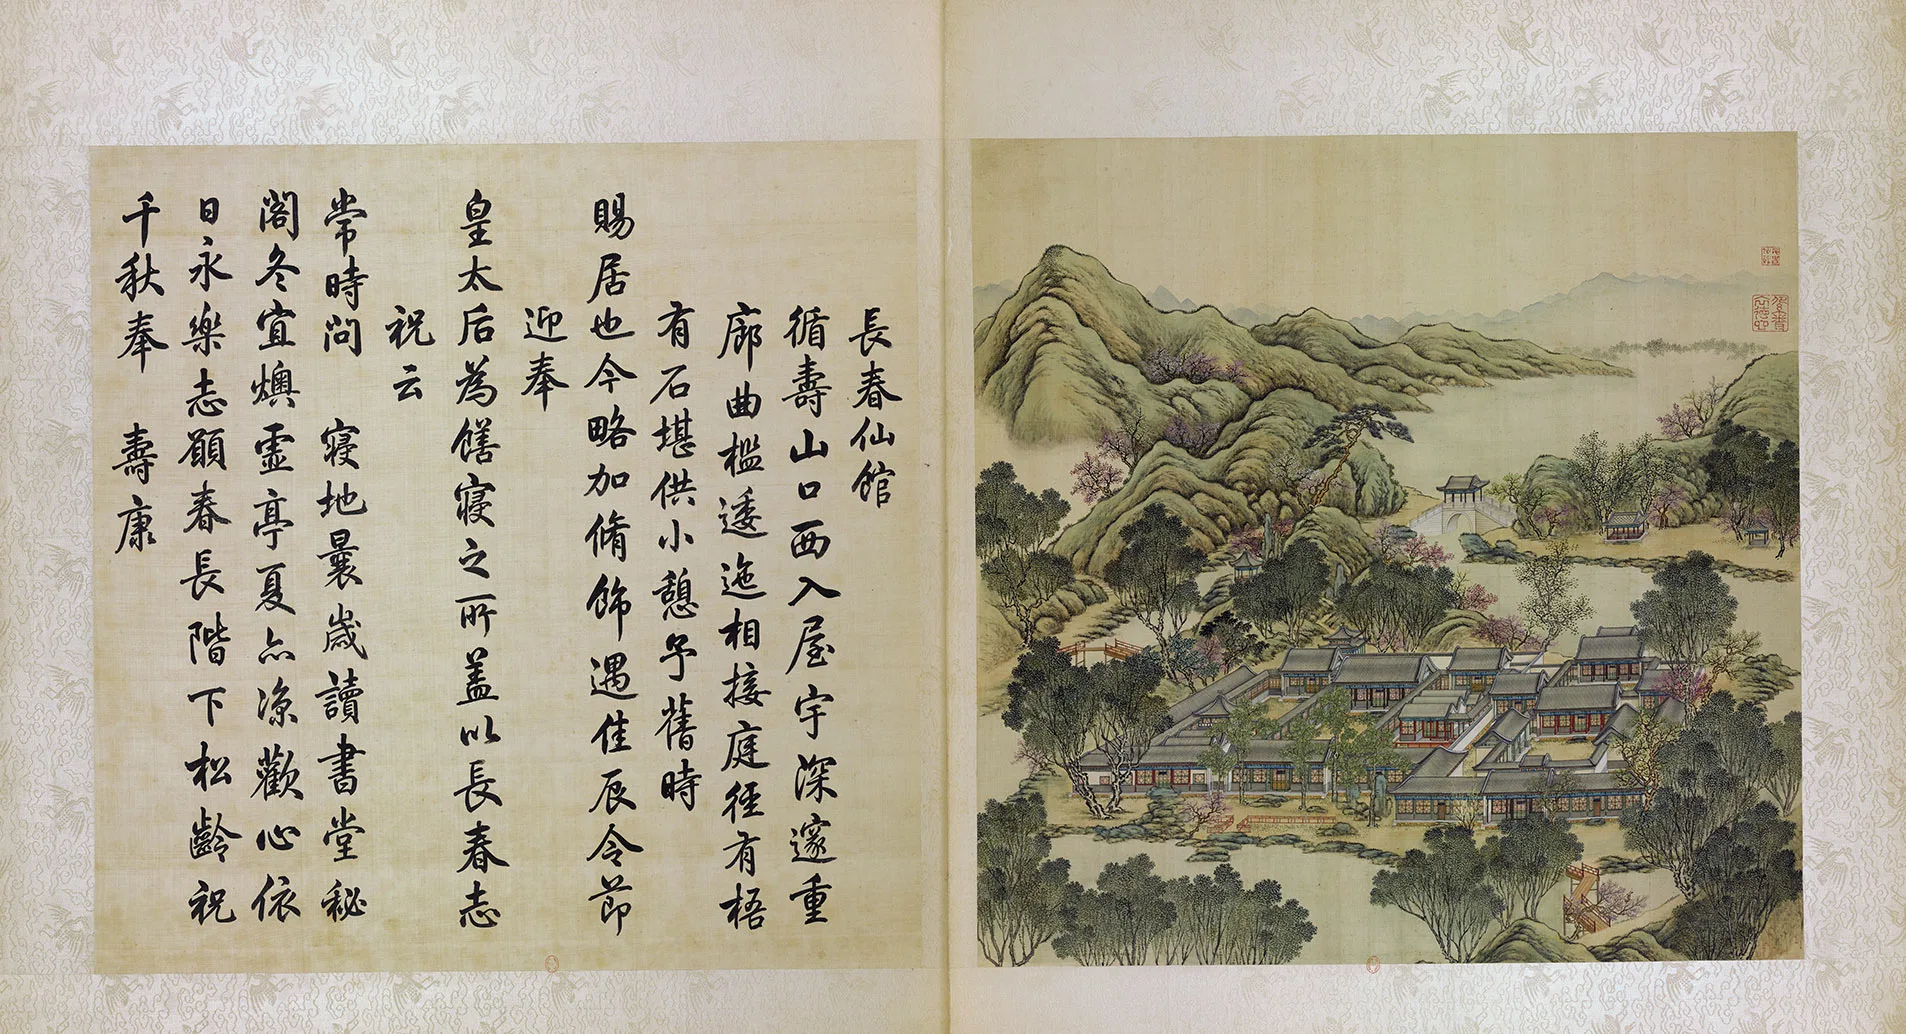 長春仙館
循壽山口西入屋宇深邃重
廊曲檻逶迤相接庭徑有梧
有石堪供小憩予舊時
賜居也今略加脩飾遇佳辰令節
迎奉
皇太后為饍寢之所盖以長春志
祝云
常時問 寢地曩歲讀書堂秘
閣冬宜燠霊亭夏亦凉歡心依
日永樂志願春長階下松齡祝
千秋奉 壽康